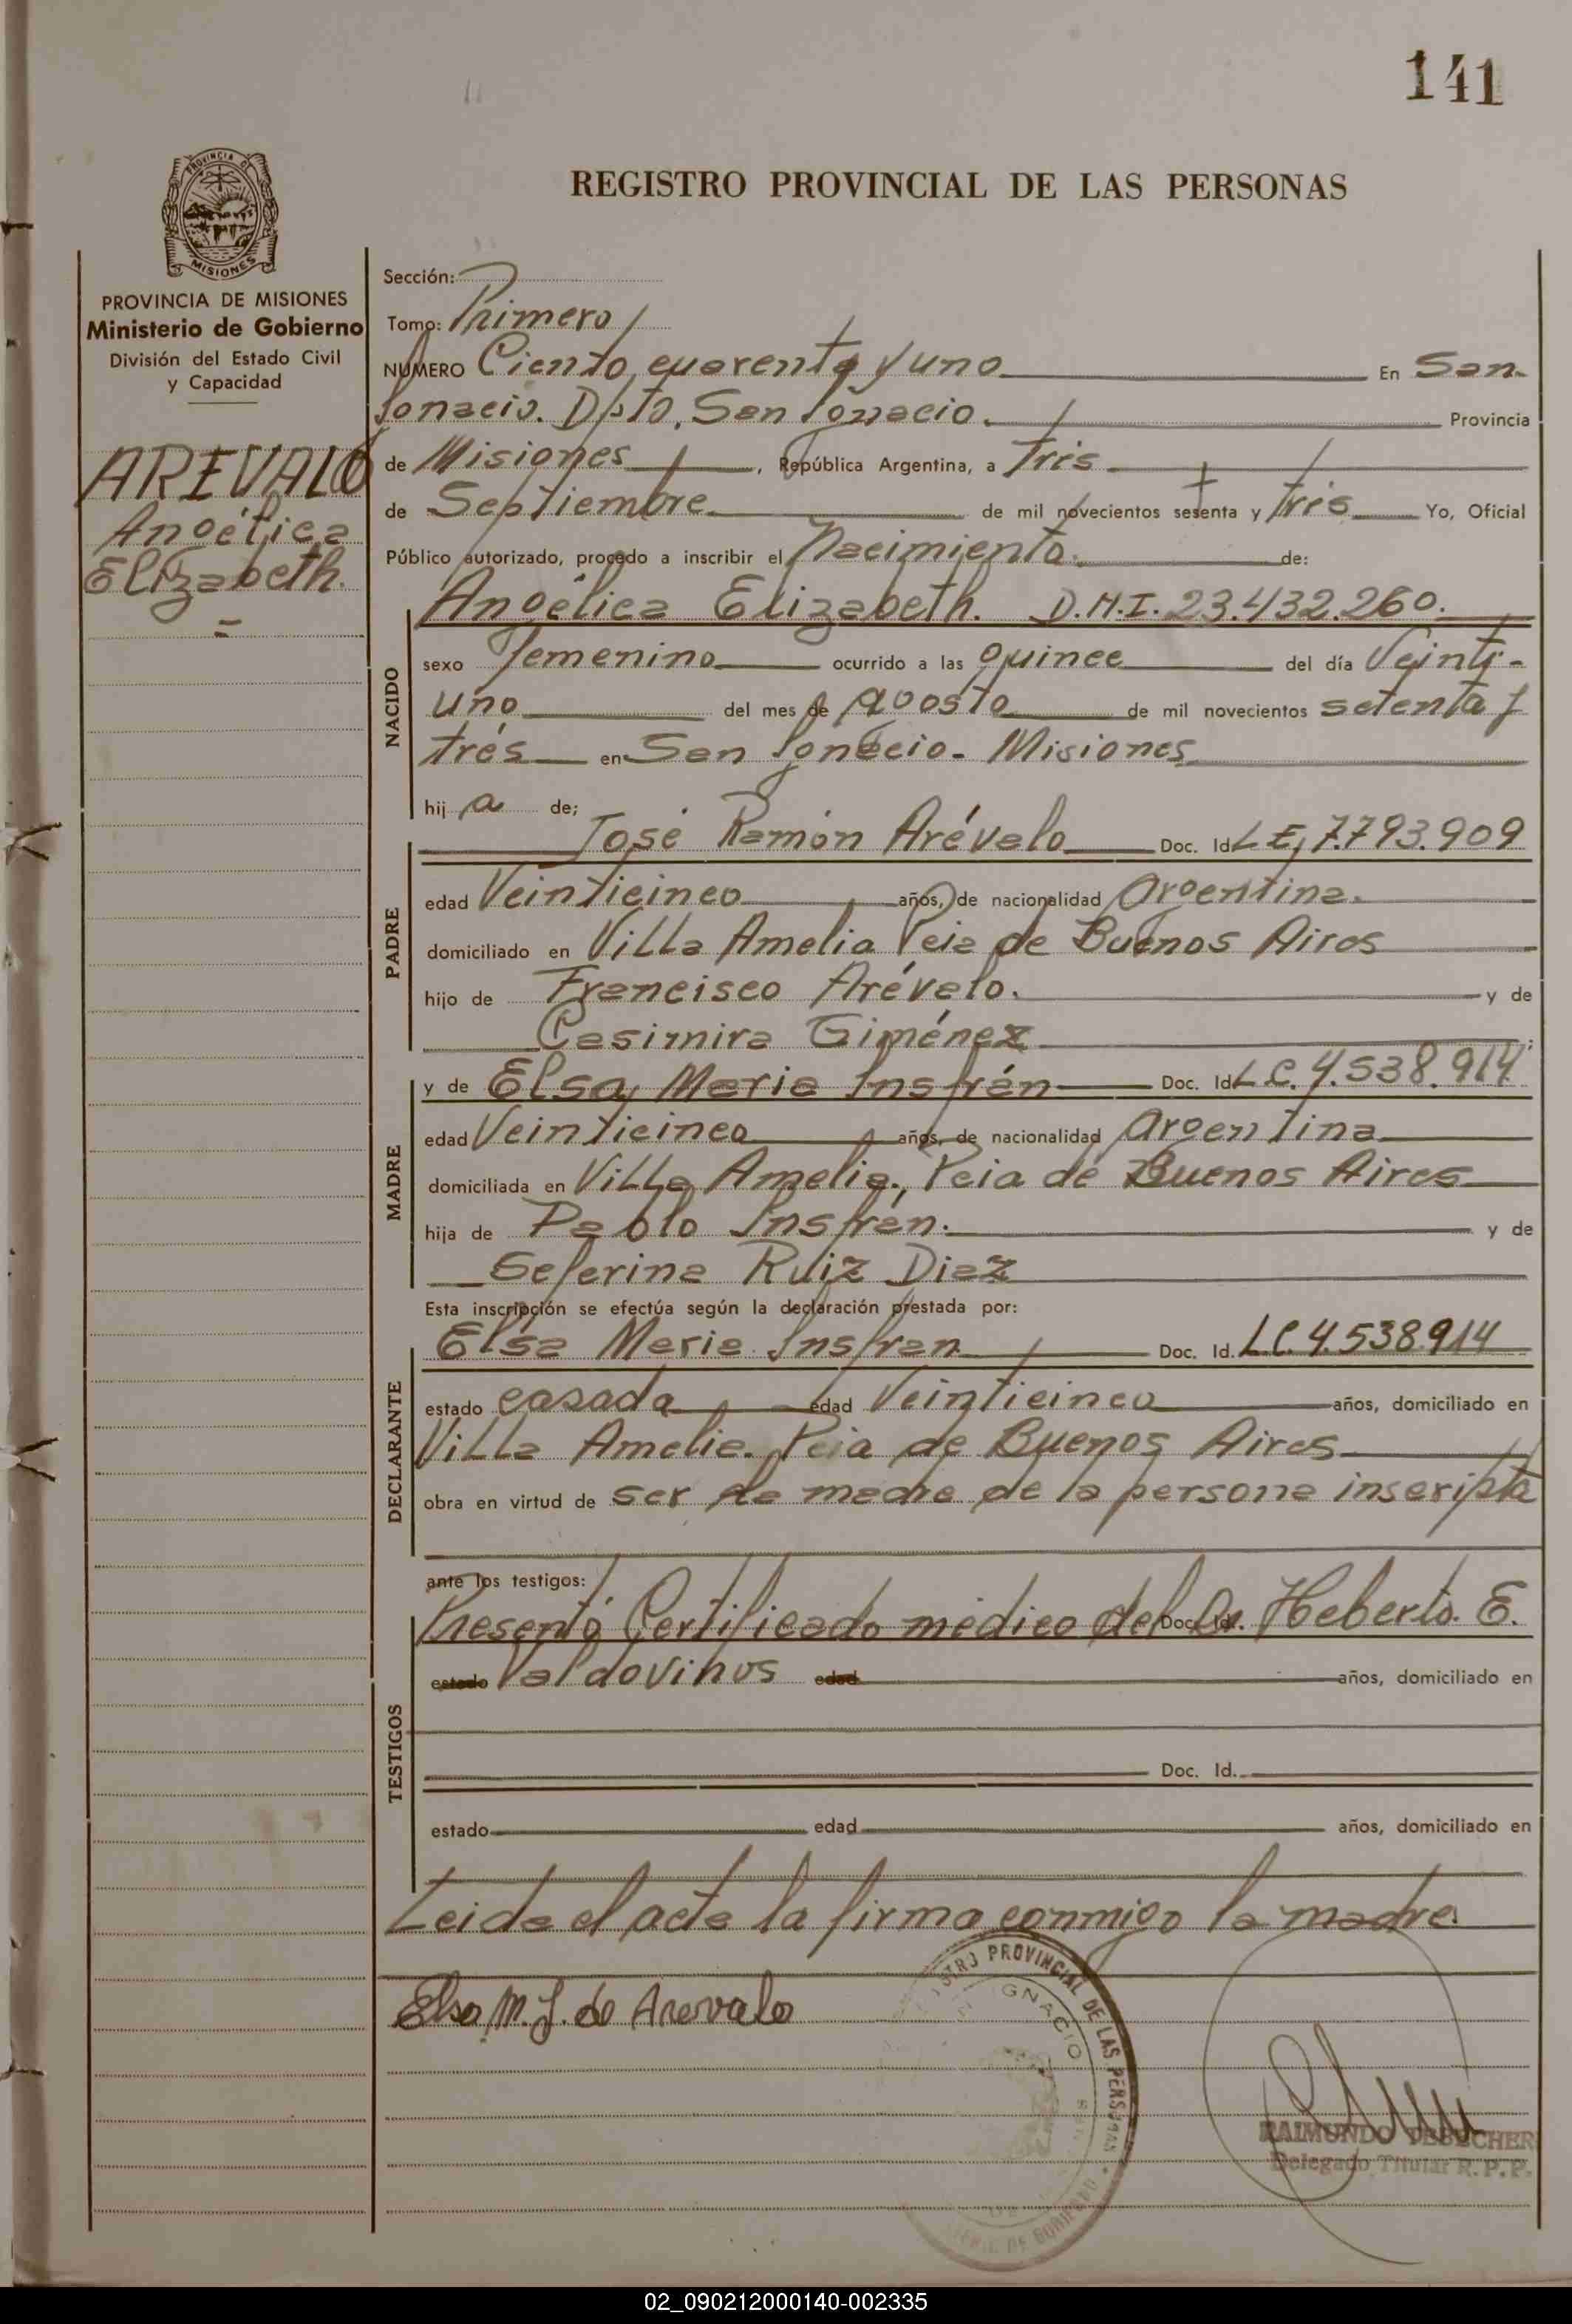 141
REGISTRO PROVINCIAL DE LAS PERSONAS
PROVINCIA DE
MISIONES
PROVINCIA DE MISIONES
Ministerio de Gobierno
División del Estado Civil
y Capacidad
AREVALO
Angélica
Elizabeth.
Sección:
Tomo: Primero
NUMERO Ciento cuarenta y uno En San
Ignacio. Dpto. San Ignacio. Provincia
de Misiones, República Argentina, a Tres
de Septiembre de mil novecientos sesenta y Trés Yo, Oficial
Público autorizado, procedo a inscribir el Nacimiento. de:
NACIDO
Angélica Elizabeth. D.N.I. 23.432.260.
sexo Femenino ocurrido a las quince del día Veinti-
uno del mes de agosto de mil novecientos setenta y
trés en San Ignacio - Misiones
hij a de;
PADRE
José Ramón Arévalo Doc. Id. L.E. 7.793.909
edad Veinticinco años, de nacionalidad argentina.
domiciliado en Villa Amelia Pcia de Buenos Aires
hijo de Francisco Arévalo. y de
Casimira Giménez
MADRE
y de Elsa Maria Insfrán Doc. Id. L.C. 4.538.914
edad Veinticinco años, de nacionalidad argentina
domiciliada en Villa Amelia, Pcia de Buenos Aires
hija de Pablo Insfrán. y de
Seferina Ruiz Diaz
Esta inscripción se efectúa según la declaración prestada por:
DECLARANTE
Elsa Maria Insfran Doc. Id. L.C. 4.538.914
estado casada edad Veinticinco años, domiciliado en
Villa Amelia. Pcia de Buenos Aires
obra en virtud de ser la madre de la persona inscripta
ante los testigos:
TESTIGOS
Presentó Certificado médico del Dr. Heberto. E. Doc. Id.
estado Valdovinos edad años, domiciliado en
Doc. Id.
estado edad años, domiciliado en
Leida el acta la firma conmigo la madre.
Elsa M. I. de Arevalo
PROVINCIAL DE LAS PERSONAS
RAIMUNDO
Delegado Titular R.P.P.
02_090212000140-002335